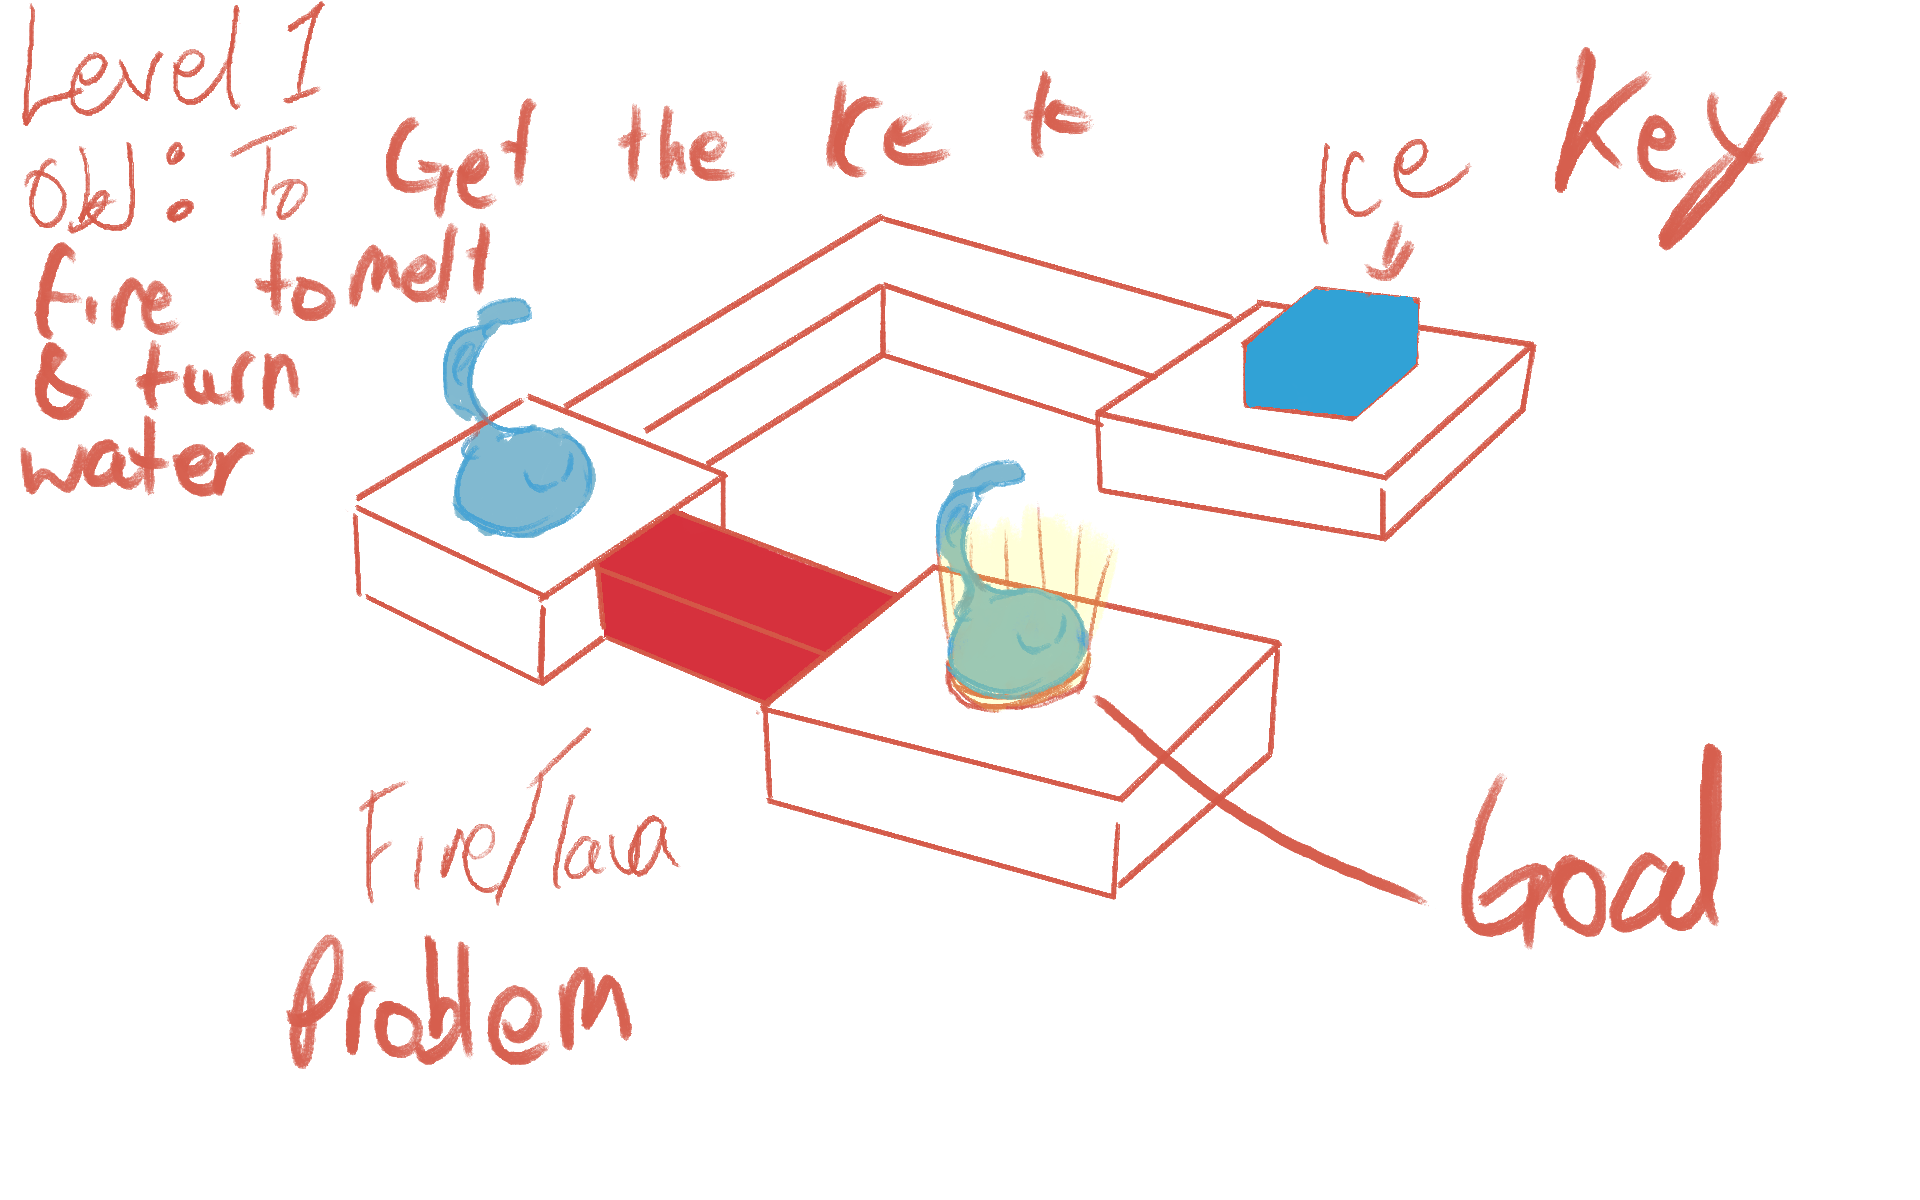 Level 1
Obj: To Get the Ice to
fire to melt
& turn
water
Ice
Key
Fire/lava
Problem
Goal